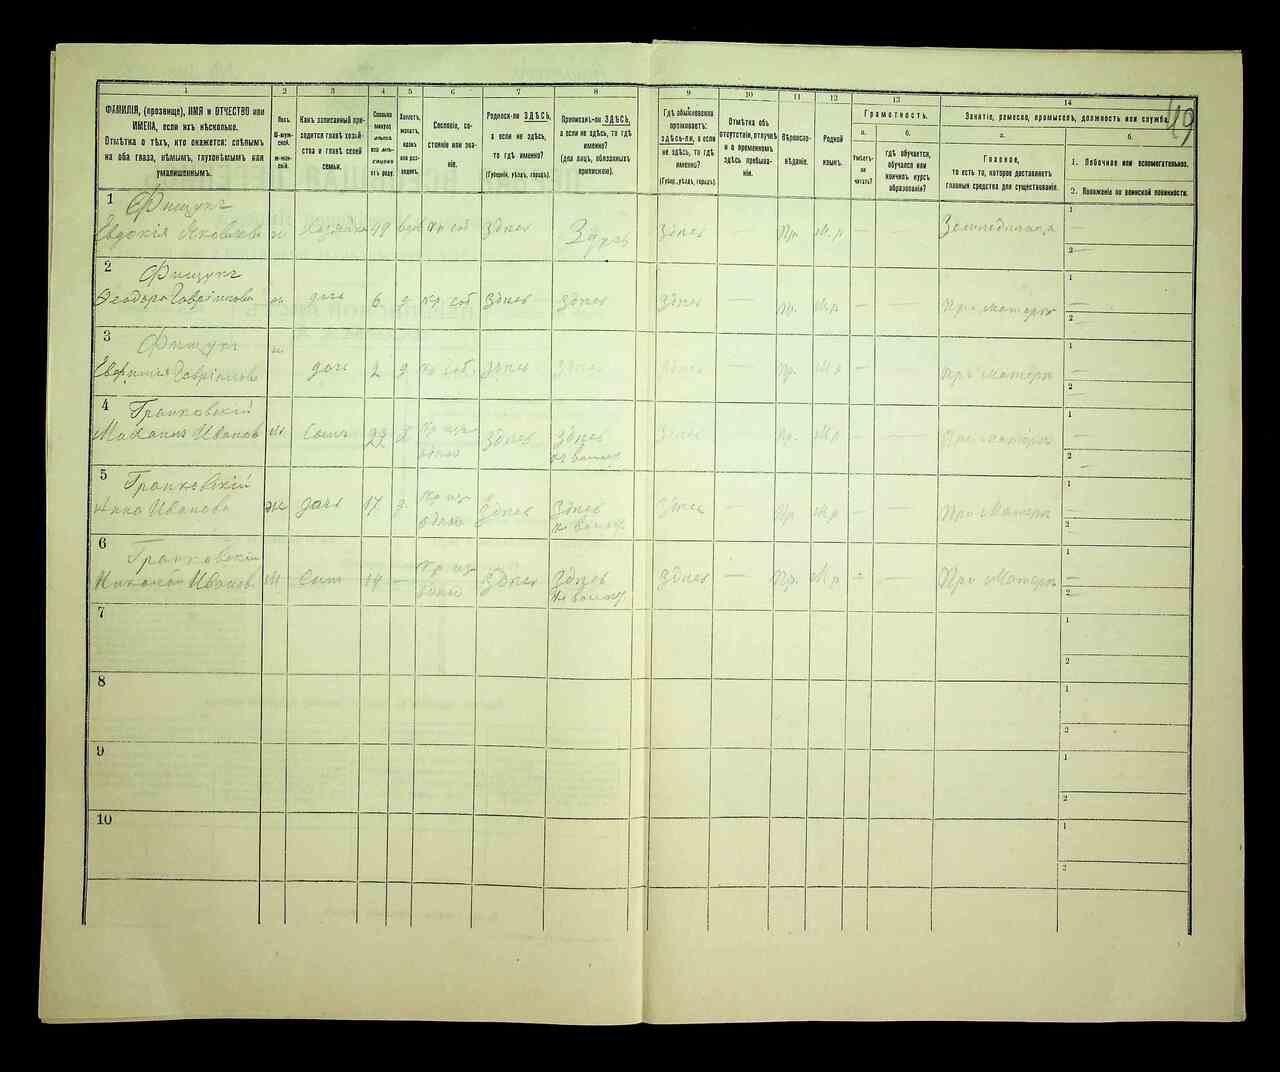 19
1
2
3
4
5
6
7
8
9
10
11
12
13
14
ФАМИЛІЯ, (прозвище), ИМЯ и ОТЧЕСТВО или
ИМЕНА, если ихъ нѣсколько.
Отмѣтка о тѣхъ, кто окажется: слѣпымъ
на оба глаза, нѣмымъ, глухонѣмымъ или
умалишеннымъ.
Полъ.
М-муж-
ской.
Ж-жен-
скій.
Какъ записанный при-
ходится главѣ хозяй-
ства и главѣ своей
семьи.
Сколько
минуло
лѣтъ
или мѣ-
сяцевъ
отъ роду.
Холостъ,
женатъ,
вдовъ
или раз-
веденъ.
Сословіе, со-
стояніе или зва-
ніе.
Родился-ли ЗДѢСЬ,
а если не здѣсь,
то гдѣ именно?
(Губернія, уѣздъ, городъ).
Приписанъ-ли ЗДѢСЬ,
а если не здѣсь, то гдѣ
именно?
(для лицъ, обязанныхъ
припискою).
Гдѣ обыкновенно
проживаетъ:
здѣсь-ли, а если
не здѣсь, то гдѣ
именно?
(Губер., уѣздъ, городъ).
Отмѣтка объ
отсутствіи, отлучкѣ
и о временномъ
здѣсь пребыва-
ніи.
Вѣроиспо-
вѣданіе.
Родной
языкъ.
Грамотность.
а.
б.
Умѣетъ-
ли
читать?
гдѣ обучается,
обучался или
кончилъ курсъ
образованія?
Занятіе, ремесло, промыселъ, должность или служба.
а.
б.
Главное,
то есть то, которое доставляетъ
главныя средства для существованія.
1. Побочное или вспомогательное.
2. Положеніе по воинской повинности.
1 Фищукъ
Евдокія Яковлева ж Хозяйка 49 вд. кр соб Здѣсь Здѣсь Здѣсь — Пр. М.р — — Земледѣлица 1 —
2 —
2 Фищукъ
Ѳеодора Гавріилова ж дочь 6 д кр соб Здѣсь Здѣсь Здѣсь — Пр. М.р — — При матери 1 —
2 —
3 Фищукъ ж
Гавріилова дочь 2 д кр соб Здѣсь Здѣсь Здѣсь — Пр. М.р — — При матери 1 —
2 —
4
Иванов м Сынъ Здѣсь Здѣсь Здѣсь — Пр. М.р — — При матери 1 —
2 —
5
Анна Иванова ж дочь 17 д. Здѣсь Здѣсь Здѣсь — Пр. М.р — — При матери 1 —
2 —
6
Николай Иванов м Сын 14 — Здѣсь Здѣсь Здѣсь — Пр. М.р — — При матери 1 —
2 —
7 1
2
8 1
2
9 1
2
10 1
2